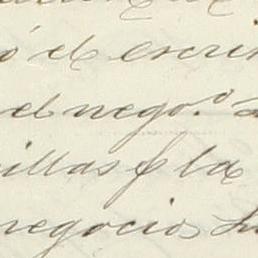 ó el escri
el nego.º
illas y la
negocios